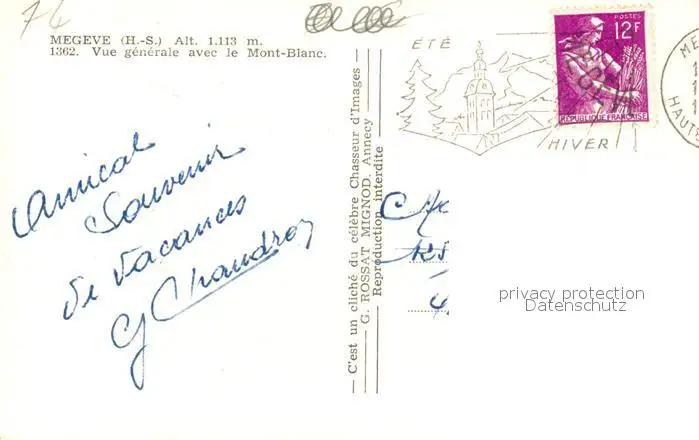 76
MEGEVE (H.-S.) Alt. 1.113 m.
1362. Vue générale avec le Mont-Blanc.
Amical
Souvenir
de vacances
— C'est un cliché du célèbre Chasseur d'Images —
— G. ROSSAT MIGNOD. Annecy —
Reproduction interdite
ÉTÉ
HIVER
POSTES
12F
REPUBLIQUE FRANÇAISE
ME
HAUTE
privacy protection
Datenschutz